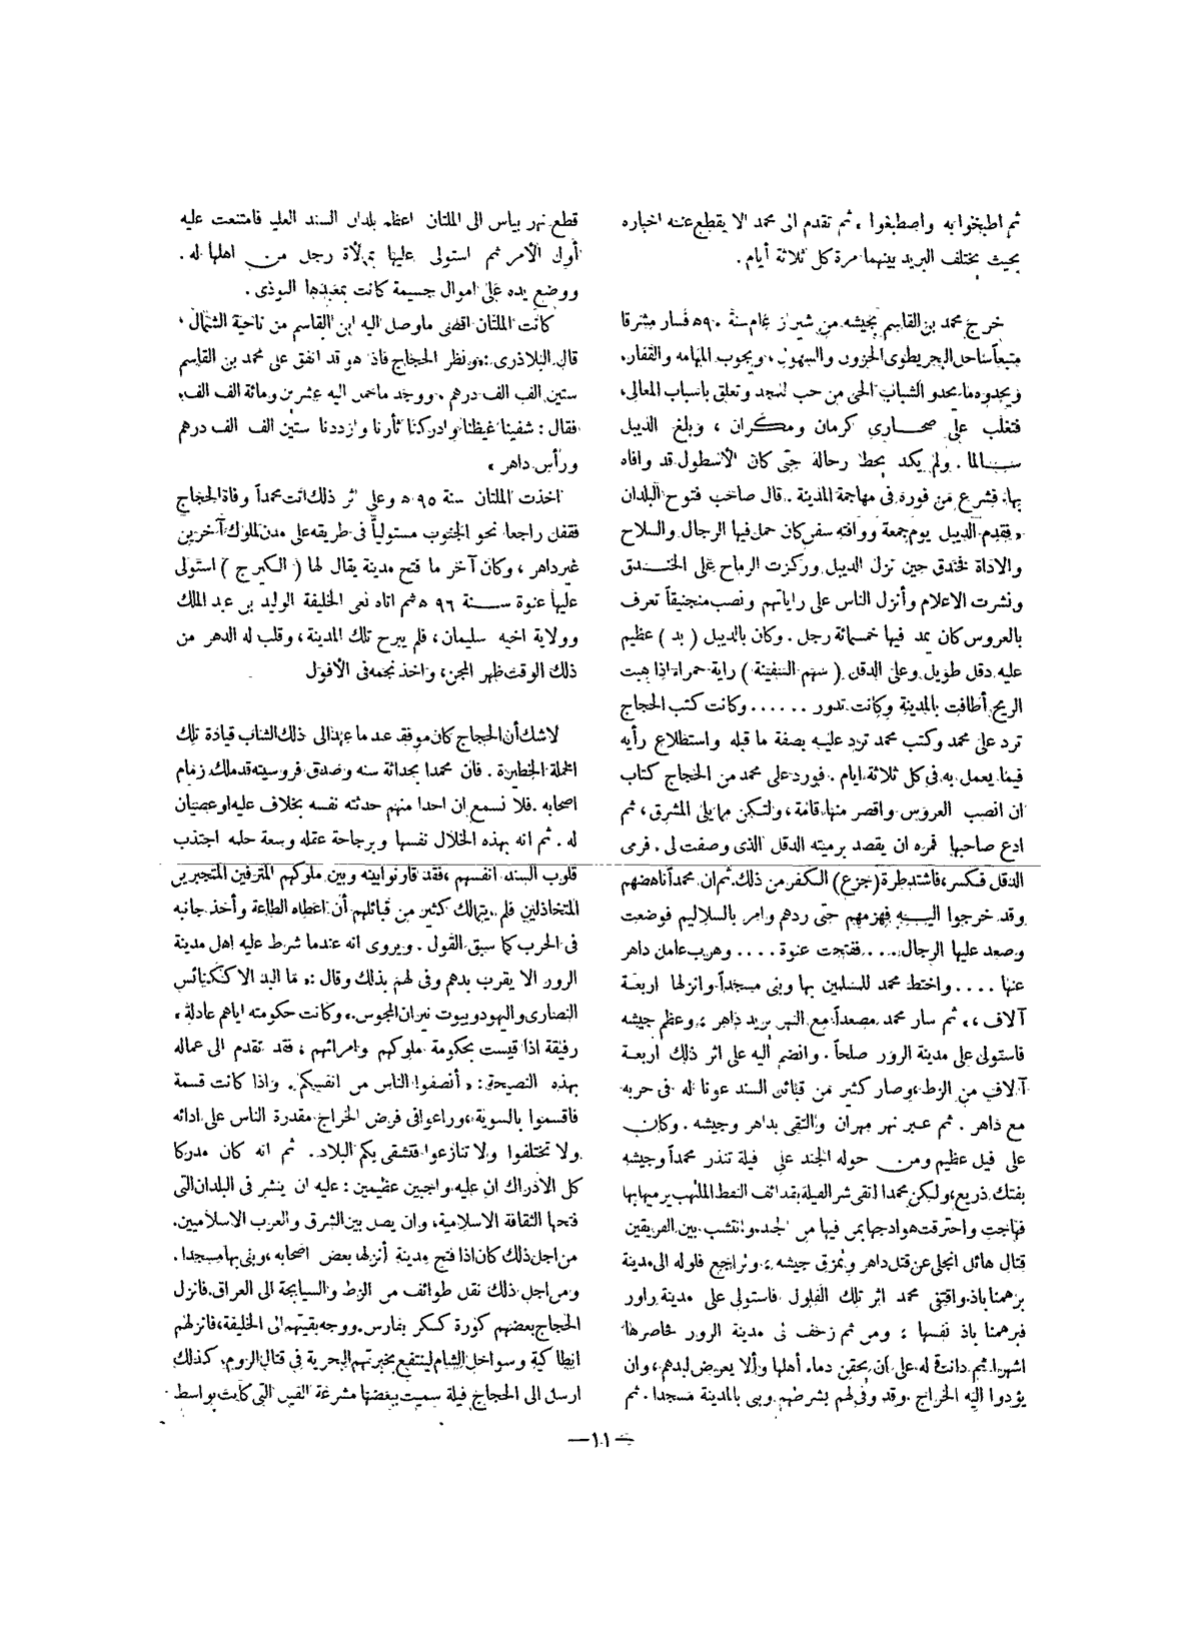 ثم اطبخوا به واصطبغوا ، ثم تقدم الى محمد الا يقطع عنه اخباره
بحيث يختلف البريد بينهما مرة كل ثلاثة أيام .
خرج محمد بن القاسم بجيشه من شيراز عام سنة ٩٠ ه فسار مشرقا
متبعاً ساحل البحر يطوى الحزون والسهول ، ويجوب المهامه والقفار ،
ويحدوه ما يحدو الشباب الحى من حب للمجد وتعلق باسباب المعالى ،
فتغلب على صحارى كرمان ومكران ، وبلغ الديبل
سالما . ولم يكد يحط رحاله حتى كان الاسطول قد وافاه
بها ، فشرع من فوره فى مهاجمة المدينة . قال صاحب فتوح البلدان
« فقدم الديبل يوم جمعة ووافته سفن كان حمل فيها الرجال والسلاح
والاداة فخندق حين نزل الديبل وركزت الرماح على الخندق
ونشرت الاعلام وأنزل الناس على راياتهم ونصب منجنيقاً تعرف
بالعروس كان يمد فيها خمسمائة رجل . وكان بالديبل ( بد ) عظيم
عليه دقل طويل وعلى الدقل ( سهم السفينة ) راية حمراء اذا هبت
الريح أطافت بالمدينة وكانت تدور ...... وكانت كتب الحجاج
ترد على محمد وكتب محمد ترد عليه بصفة ما قبله واستطلاع رأيه
فيما يعمل به فى كل ثلاثة ايام . فورد على محمد من الحجاج كتاب
ان انصب العروس واقصر منها قائمة ، ولتكن مما يلى المشرق ، ثم
ادع صاحبها فمره ان يقصد برميته الدقل الذى وصفت لى . فرمى
الدقل فكسر ، فاشتد طرة (جزع) الكفر من ذلك. ثم ان محمداً ناهضهم
وقد خرجوا اليه فهزمهم حتى ردهم وامر بالسلاليم فوضعت
وصعد عليها الرجال .... ففتحت عنوة .... وهرب عامل داهر
عنها .... واختط محمد للمسلمين بها وبنى مسجداً وانزلها اربعة
آلاف » . ثم سار محمد مصعداً مع النهر يريد داهر ، وعظم جيشه
فاستولى على مدينة الرور صلحاً . وانضم اليه على اثر ذلك اربعة
آلاف من الزط ، وصار كثير من قبائل السند عونا له فى حربه
مع داهر . ثم عبر نهر مهران والتقى بداهر وجيشه . وكان
على فيل عظيم ومن حوله الجند على فيلة تنذر محمداً وجيشه
بفتك ذريع ، ولكن محمدا اتقى شر الفيلة بقذائف النفط الملتهب يرميها بها
فهاجت واحترقت هوادجها بمن فيها من الجند وانتشب بين الفريقين
قتال هائل انجلى عن قتل داهر وتمزق جيشه ، وتراجع فلوله الى مدينة
برهمناباذ . واقتفى محمد اثر تلك الفلول فاستولى على مدينة راور
فبرهمنا باذ نفسها ؛ ومن ثم زحف الى مدينة الرور فحاصرها
اشهرا . ثم دانت له على ان يحقن دماء أهلها وألا يعرض لبدهم ، وان
يؤدوا اليه الخراج . وقد وفى لهم بشرطهم وبنى بالمدينة مسجدا . ثم
قطع نهر بياس الى الملتان اعظم بلدان السند العليا فامتنعت عليه
أول الأمر ثم استولى عليها بممالأة رجل من اهلها له .
ووضع يده على اموال جسيمة كانت بمعبدها البوذى .
كانت الملتان اقصى ما وصل اليه ابن القاسم من ناحية الشمال .
قال البلاذرى : « ونظر الحجاج فاذا هو قد انفق على محمد بن القاسم
ستين الف الف درهم ، ووجد ما حمل اليه عشرين ومائة الف الف ،
فقال : شفينا غيظنا وادركنا ثأرنا وازددنا ستين الف الف درهم
ورأس داهر »
اخذت الملتان سنة ٩٥ ه وعلى اثر ذلك اتت محمداً وفاة الحجاج
فقفل راجعا نحو الجنوب مستولياً فى طريقه على مدن لملوك آخرين
غير داهر ، وكان آخر ما فتح مدينة يقال لها ( الكيرج ) استولى
عليها عنوة سنة ٩٦ ه ثم اتاه نعى الخليفة الوليد بن عبد الملك
وولاية اخيه سليمان ، فلم يبرح تلك المدينة ، وقلب له الدهر من
ذلك الوقت ظهر المجن ، واخذ نجمه فى الأفول
لا شك أن الحجاج كان موفقا عند ما عهد الى ذلك الشاب قيادة تلك
الحملة الخطيرة . فان محمدا بحداثة سنه وصدق فروسيته قد ملك زمام
اصحابه . فلا نسمع ان احدا منهم حدثته نفسه بخلاف عليه او عصيان
له . ثم انه بهذه الخلال نفسها وبرجاحة عقله وسعة حلمه اجتذب
قلوب السند انفسهم ، فقد قارنوا بينه وبين ملوكهم المترفين المتجبرين
المتخاذلين فلم يتمالك كثير من قبائلهم أن اعطاه الطاعة وأخذ جانبه
فى الحرب كما سبق القول . ويروى انه عندما شرط عليه اهل مدينة
الرور الا يقرب بدهم وفى لهم بذلك وقال : « ما البد الا ككنائس
النصارى واليهود وبيوت نيران المجوس » . وكانت حكومته اياهم عادلة ،
رفيقة اذا قيست بحكومة ملوكهم وامرائهم ، فقد تقدم الى عماله
بهذه النصيحة : « أنصفوا الناس من انفسكم ، واذا كانت قسمة
فاقسموا بالسوية ، وراعوا فى فرض الخراج مقدرة الناس على ادائه
ولا تختلفوا ولا تنازعوا فتشقى بكم البلاد . ثم انه كان مدركا
كل الادراك ان عليه واجبين عظيمين : عليه ان ينشر فى البلدان التى
فتحها الثقافة الاسلامية ، وان يصل بين الشرق والعرب الاسلاميين .
من اجل ذلك كان اذا فتح مدينة أنزلها بعض اصحابه ، وبنى بها مسجدا .
ومن اجل ذلك نقل طوائف من الزط والسيابجة الى العراق . فانزل
الحجاج بعضهم كورة كسكر بفارس . ووجه بقيتهم الى الخليفة ، فانزلهم
انطاكية وسواحل الشام لينتفع بخبرتهم البحرية فى قتال الروم . كذلك
ارسل الى الحجاج فيلة سميت ببعضها مشرعة الفيل التى كانت بواسط .
— ١١ —